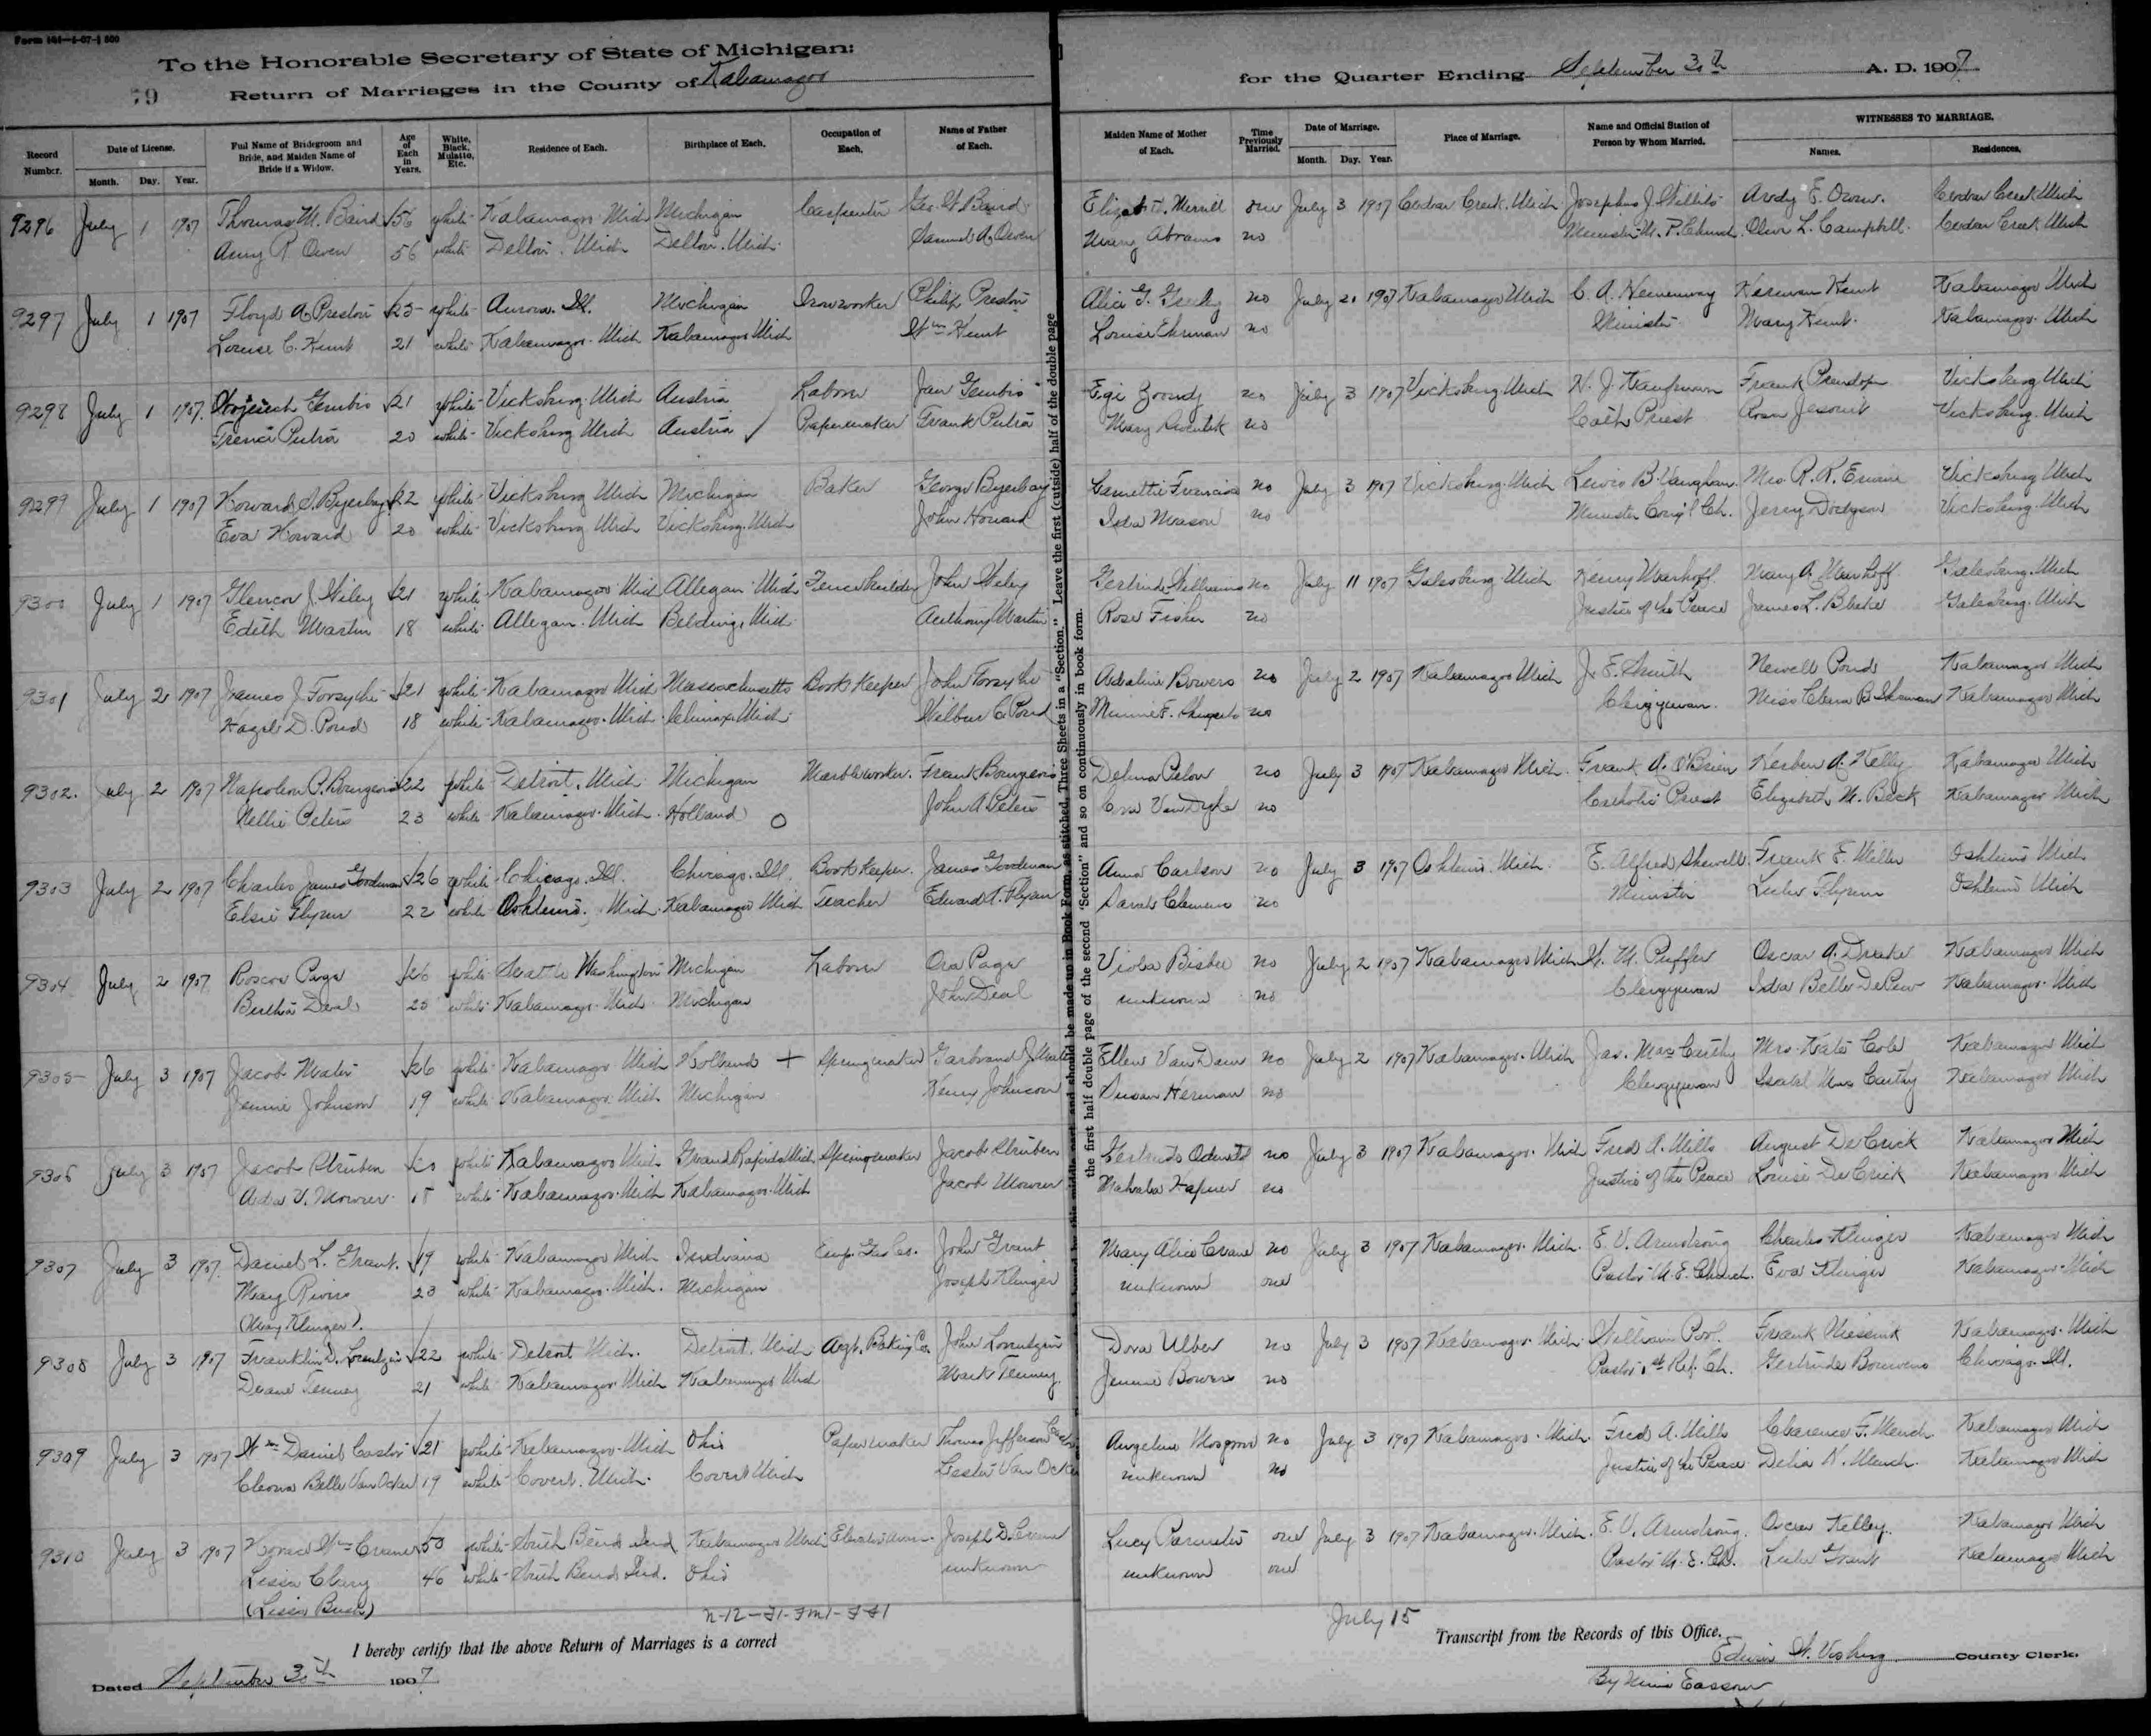 Form 164-4-07-1 500
To the Honorable Secretary of State of Michigan:
79
Return of Marriages in the County of Kalamazoo
for the Quarter Ending September 30th A. D. 1907
Record Number. Date of License. Month. Day. Year. Full Name of Bridegroom and Bride, and Maiden Name of Bride if a Widow. Age of Each in Years. White, Black, Mulatto, Etc. Residence of Each. Birthplace of Each. Occupation of Each. Name of Father of Each. Maiden Name of Mother of Each. Time Previously Married. Date of Marriage. Month. Day. Year. Place of Marriage. Name and Official Station of Person by Whom Married. WITNESSES TO MARRIAGE. Names. Residences.
9296 July 1 1907 Thomas M. Baird 56 white Kalamazoo Mich Michigan Carpenter Geo. W. Baird Elizabeth Merrill one July 3 1907 Cedar Creek, Mich Josephus J. Willits Ardy E. Owen Cedar Creek Mich
Amy R Owen 56 white Delton, Mich Delton, Mich. Samuel A. Owen Mary Abrams no Minister M. P. Church Olive L. Campbell Cedar Creek Mich
9297 July 1 1907 Floyd A. Preston 25 white Aurora, Ill. Michigan Ironworker Philip Preston Alice G. no July 1907 Kalamazoo Mich C. A. Hemenway Herman Kent Kalamazoo Mich
Louise C. Kent 21 white Kalamazoo Mich Kalamazoo Mich Wm Kent Louise Ehrman no Minister Mary Kent Kalamazoo Mich
9298 July 1 1907 21 white Vicksburg Mich Austria Laborer Jan no July 3 1907 Vicksburg Mich H. J. Kaufman Frank Vicksburg Mich
20 white Vicksburg Mich Austria Papermaker Frank Mary no Cath Priest Rosa Vicksburg Mich
9299 July 1 1907 Howard S. Byerlay 22 white Vicksburg Mich Michigan Baker George Byerlay Francisco no July 3 1907 Vicksburg Mich Lewis B. Vaughan Mrs. R. R. Vicksburg Mich
Eva Howard 20 white Vicksburg Mich Vicksburg Mich John Howard Ida Mason no Minister Cong'l Ch. Jersey Dodgson Vicksburg Mich
9300 July 1 1907 J. Wiley 21 white Kalamazoo Mich Allegan Mich Fence builder John Wiley Gertrude Williams no July 11 1907 Galesburg Mich Henry Warhoff Mary A. Warhoff Galesburg Mich
Edith Martin 18 white Allegan Mich Belding, Mich Anthony Martin Rose Fisher no Justice of the Peace James L. Blake Galesburg Mich
9301 July 2 1907 James J. Forsythe 21 white Kalamazoo Mich Massachusetts Book Keeper John Forsythe Adaline Bowers no July 2 1907 Kalamazoo Mich J. E. Smith Newell Pond Kalamazoo Mich
Hazel D. Pond 18 white Kalamazoo Mich Climax Mich. Wilbur C Pond Minnie E. no Clergyman Miss Clara B. Kalamazoo Mich
9302 July 2 1907 Napoleon P. Bourgeois 22 white Detroit, Mich Michigan Marbleworker Frank Bourgeois Delma no July 3 1907 Kalamazoo Mich. Frank A. O'Brien A. Kelly Kalamazoo Mich
Nellie Peters 23 white Kalamazoo Mich. Holland John A Peters Cora VanDyke no Catholic Priest Elizabeth M. Beck Kalamazoo Mich
9303 July 2 1907 Charles James Goodman 26 white Chicago, Ill. Chicago, Ill. Book keeper. James Goodman Anna Carlson no July 3 1907 Oshtemo Mich. E. Alfred Frank E. Miller Oshtemo Mich
Elsie Flynn 22 white Oshtemo, Mich. Kalamazoo Mich Teacher Edward T. Flynn Sarah Clemens no Minister Flynn Oshtemo Mich
9304 July 2 1907 Roscoe Page 26 white Seattle Washington Michigan Laborer Ora Page Viola Bisbee no July 2 1907 Kalamazoo Mich W. M. Puffer Oscar A. Drake Kalamazoo Mich
Bertha Deal white Kalamazoo Mich Michigan John Deal unknown no Clergyman Ida Belle DePew Kalamazoo Mich
9305 July 3 1907 Jacob Mater 26 white Kalamazoo Mich Holland Springmaker Ellen Van Dam no July 2 1907 Kalamazoo Mich Jas. MacCarthy Mrs. Kate Cole Kalamazoo Mich
Jennie Johnson 19 white Kalamazoo Mich Michigan Henry Johnson Susan Herman no Clergyman Isabel MacCarthy Kalamazoo Mich
9306 July 3 1907 Jacob Struben 20 white Kalamazoo Mich Grand Rapids Mich Springmaker Jacob Struben Gertrude no July 3 1907 Kalamazoo Mich Fred A. Mills August DeCrick Kalamazoo Mich
Ada V. Mowrer 18 white Kalamazoo Mich Kalamazoo Mich Jacob Mowrer Mahala no Justice of the Peace Louise DeCrick Kalamazoo Mich
9307 July 3 1907 Daniel L. Grant 19 white Kalamazoo Mich Indiana Emp. Gas Co. John Grant Mary Alice Crane no July 3 1907 Kalamazoo Mich. E. V. Armstrong Charles Klinger Kalamazoo Mich
Mary Rivers 23 white Kalamazoo Mich. Michigan Joseph Klinger unknown one Pastor M. E. Church Eva Klinger Kalamazoo Mich
(Mary Klinger).
9308 July 3 1907 Franklin D. Lorentzen 22 white Detroit Mich. Detroit, Mich Agt. Baking Co. John Lorentzen Dora Ulber no July 3 1907 Kalamazoo Mich William Pool Frank Wiessink Kalamazoo Mich
Deane Tenney 21 white Kalamazoo Mich Kalamazoo Mich Mark Tenney Jennie Bowers no Pastor 1st Ref. Ch. Gertrude Chicago Ill.
9309 July 3 1907 Wm Daniel Castor 21 white Kalamazoo Mich Ohio Papermaker Thomas Jefferson Castor Angeline no July 3 1907 Kalamazoo Mich. Fred A. Mills Clarence F. Mench Kalamazoo Mich
Cleona Belle VanOcker 19 white Covert, Mich. Covert Mich Lester Van Ocker unknown no Justice of the Peace Delia N. Mench Kalamazoo Mich
9310 July 3 1907 Horace Wm Cramer 50 white South Bend Ind Kalamazoo Mich Joseph D. Lucy Parmeter one July 3 1907 Kalamazoo Mich. E. V. Armstrong Oscar Kelley Kalamazoo Mich
46 white South Bend Ind. Ohio unknown unknown one Pastor M. E. Ch. Grant Kalamazoo Mich
Leave the first (outside) half of the double page
the first half double page of the second "Section" and so on continuously in book form.
n-12-F1-Fm1-FF1
July 15
I hereby certify that the above Return of Marriages is a correct Transcript from the Records of this Office.
Dated September 30th 1907
Edwin W. Vosburg County Clerk.
By